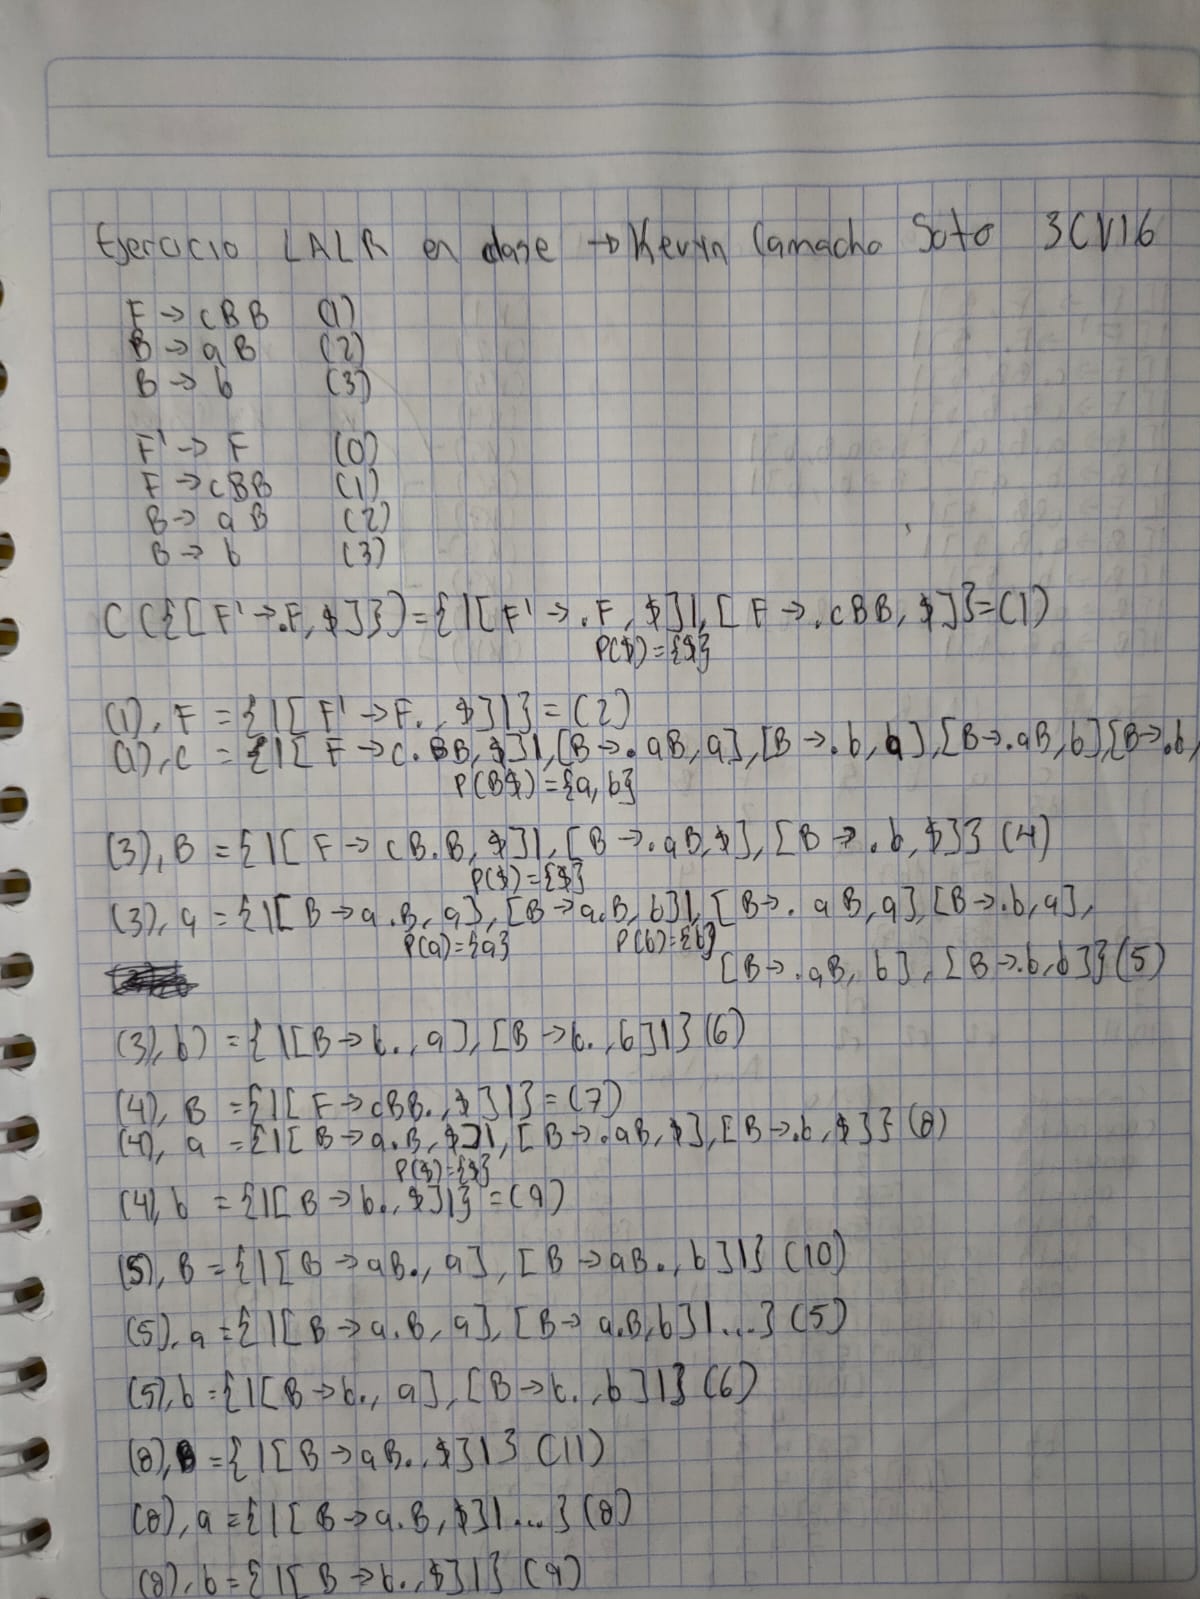 Ejercicio LALR en clase → Kevin Camacho Soto 3CV16
F → cBB (1)
B → aB (2)
B → b (3)
F' → F (0)
F → cBB (1)
B → aB (2)
B → b (3)
C({[F' → .F, $]}) = {|[F' → .F, $]|, [F → .cBB, $]} = (1)
P($) = {$}
(1), F = {|[F' → F., $]|} = (2)
(1), c = {|[F → c.BB, $]|, [B → .aB, a], [B → .b, a], [B → .aB, b] [B → .b,
P(B$) = {a, b}
(3), B = {|[F → cB.B, $]|, [B → .aB, $], [B → .b, $]} (4)
P($) = {$}
(3), a = {|[B → a.B, a], [B → a.B, b]|, [B → .aB, a], [B → .b, a],
P(a) = {a} P(b) = {b}
[B → .aB, b], [B → .b, b]} (5)
(3), b) = {|[B → b., a], [B → b., b]|} (6)
(4), B = {|[F → cBB., $]|} = (7)
(4), a = {|[B → a.B, $]|, [B → .aB, $], [B → .b, $]} (8)
P($) = {$}
(4), b = {|[B → b., $]|} = (9)
(5), B = {|[B → aB., a], [B → aB., b]|} (10)
(5), a = {|[B → a.B, a], [B → a.B, b]|...} (5)
(5), b = {|[B → b., a], [B → b., b]|} (6)
(8), B = {|[B → aB., $]|} (11)
(8), a = {|[B → a.B, $]|...} (8)
(8), b = {|[B → b., $]|} (9)